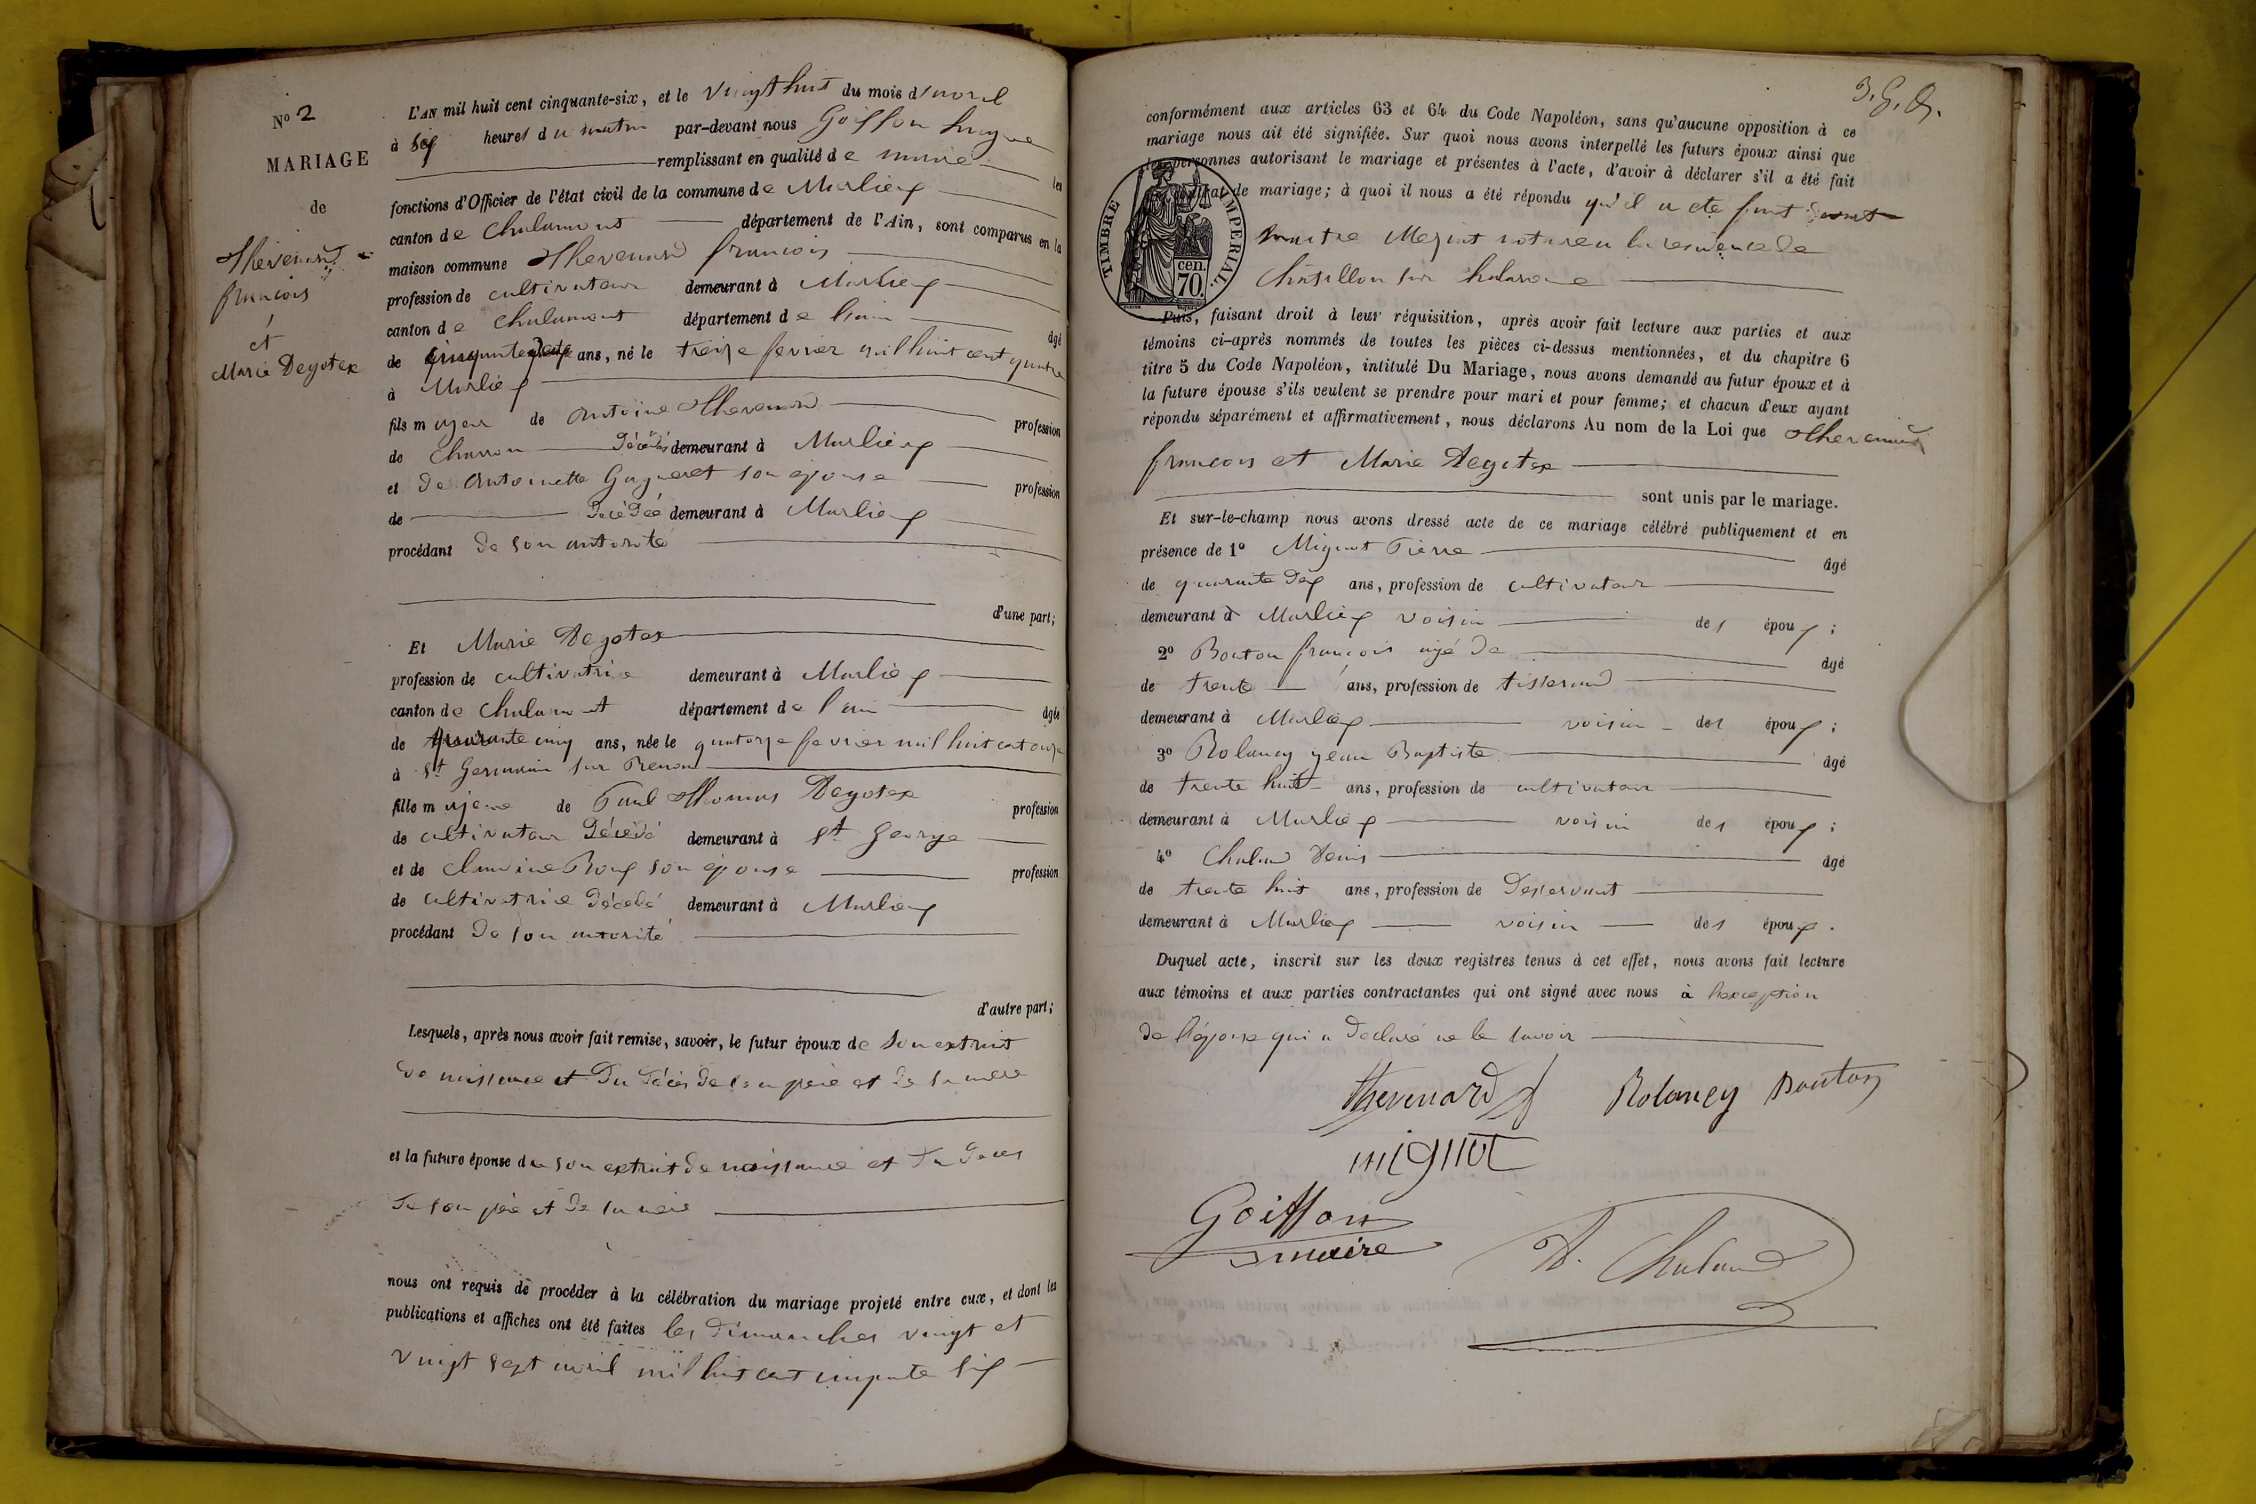 N° 2
MARIAGE
de
Thevenard
francois
et
Marie Degotex
L'AN mil huit cent cinquante-six, et le vingt huit du mois d'avril
à six heures du matin par-devant nous Goiffon hugue
remplissant en qualité de maire les
fonctions d'Officier de l'état civil de la commune de Marlieux
canton de chalamont département de l'Ain, sont comparus en la
maison commune Thevenard francois
profession de cultivateur demeurant à Marlieux
canton de chalamont département de l'ain âgé
de cinquante deux ans, né le treize fevrier mil huit cent quatre
à Marlieux
fils majeur de Antoine Thevenard profession
de charron décédé demeurant à Marlieux
et de Antoinette Gagneret son epouse profession
de décédée demeurant à Marlieux
procédant de son autorité
d'une part;
Et Marie Degotex
profession de cultivatrice demeurant à Marlieux
canton de chalamont département de l'ain âgée
de quarante cinq ans, née le quatorze fevrier mil huit cent onze
à St Germain sur Renom
fille majeure de Paul Thomas Degotex profession
de cultivateur décédé demeurant à St George
et de claudine Roux son épouse profession
de cultivatrice décédé demeurant à Marlieux
procédant de son autorité
d'autre part;
Lesquels, après nous avoir fait remise, savoir, le futur époux de son extrait
de naissance et du décès de son père et de sa mère
et la future épouse de son extrait de naissance et du deces
de son père et de sa mère
nous ont requis de procéder à la célébration du mariage projeté entre eux, et dont les
publications et affiches ont été faites les dimanches vingt et
vingt sept avril mil huit cent cinquante six
conformément aux articles 63 et 64 du Code Napoléon, sans qu'aucune opposition à ce
mariage nous ait été signifiée. Sur quoi nous avons interpellé les futurs époux ainsi que
les personnes autorisant le mariage et présentes à l'acte, d'avoir à déclarer s'il a été fait
contrat de mariage; à quoi il nous a été répondu qu'il a ete fait devant
maitre notaire a la residence de
chatillon sur chalaronne
TIMBRE IMPERIAL.
70. cen.
Puis, faisant droit à leur réquisition, après avoir fait lecture aux parties et aux
témoins ci-après nommés de toutes les pièces ci-dessus mentionnées, et du chapitre 6
titre 5 du Code Napoléon, intitulé Du Mariage, nous avons demandé au futur époux et à
la future épouse s'ils veulent se prendre pour mari et pour femme; et chacun d'eux ayant
répondu séparément et affirmativement, nous déclarons Au nom de la Loi que Thevenard
francois et Marie Degotex
sont unis par le mariage.
Et sur-le-champ nous avons dressé acte de ce mariage célébré publiquement et en
présence de 1° Mignot Pierre âgé
de quarante dex ans, profession de cultivateur
demeurant à Marlieux voisin des époux;
2° Bouton françois agé de âgé
de trente ans, profession de tisserand
demeurant à Marlieux voisin des époux;
3° Rolancy jean Baptiste âgé
de trente huit ans, profession de cultivateur
demeurant à Marlieux voisin des époux;
4° Chaland Denis âgé
de trente huit ans, profession de Desservant
demeurant à Marlieux voisin des époux.
Duquel acte, inscrit sur les deux registres tenus à cet effet, nous avons fait lecture
aux témoins et aux parties contractantes qui ont signé avec nous à l'exception
de l'épouse qui a declaré ne le savoir
thevenard Rolancy Bouton
mignot
Goiffon
maire
D. Chaland